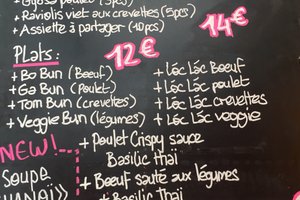 + Gyoza poulet (5pcs)
+ Raviolis viet aux crevettes (5pcs)
+ Assiette à partager (10pcs)
14€
Plats:
12€
+ Bo Bun (Boeuf)
+ Ga Bun (Poulet)
+ Tom Bun (crevettes)
+ Veggie Bun (légumes)
+ Lóc Lác Boeuf
+ Lóc Lác poulet
+ Lóc Lác crevettes
+ Lóc Lác veggie
NEW!
+ Poulet Crispy sauce
Basilic Thaï
+ Boeuf sauté aux légumes
+ Basilic Thaï
Soupe